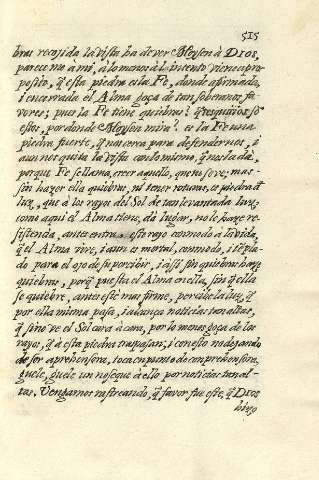 515
bras recojida la vista ha de ver Moysen à Dios,
parece no a mi, à lo menos al intento viene apro-
posito, q̃ esta piedra es la Fè, donde afirmada,
i encerrada el Alma goça de tan soberanos fa-
vores; pues la Fè tiene quiebras? q̃ resquicios sõ
estos, por donde Moyson mira? es la Fè una
piedra fuerte, q̃ nos cerca para defendernos, i
aun nos quita la vista con lo mismo, q̃ nos la da,
porque Fè se llama, creer aquello, que no se ve; mas
sin hazer ella quiebras, ni tener roturas, es piedra dẽ
luz, que à los rayos del Sol de tan levantada luz,
como aqui el Alma tiene, da lugar, no le haze re-
sistencia, antes entra este rayo commodo à la vida,
q̃ el Alma vive, i aun es mortal, commodo, i tẽpla-
do para el ojo de su percibir, i assi sin quiebras haze
quiebras, porq̃ puesta el Alma en ella, sin q̃ ella
se quiebre, antes estè mas firme, percibe la luz, q̃
por ella misma pasa, i alcança noticias tan altas,
q̃ sino ve el Sol cara à cara, por lo menos goça de los
rayos, q̃ a esta piedra traspasan; i con esto no dejando
de ser aprehensora, toca en punto de comprehensora,
guele, guele un no se que à ello por noticias tan al-
tas. Vengamos rastreando, q̃ favor fue este, q̃ Dios
hizo